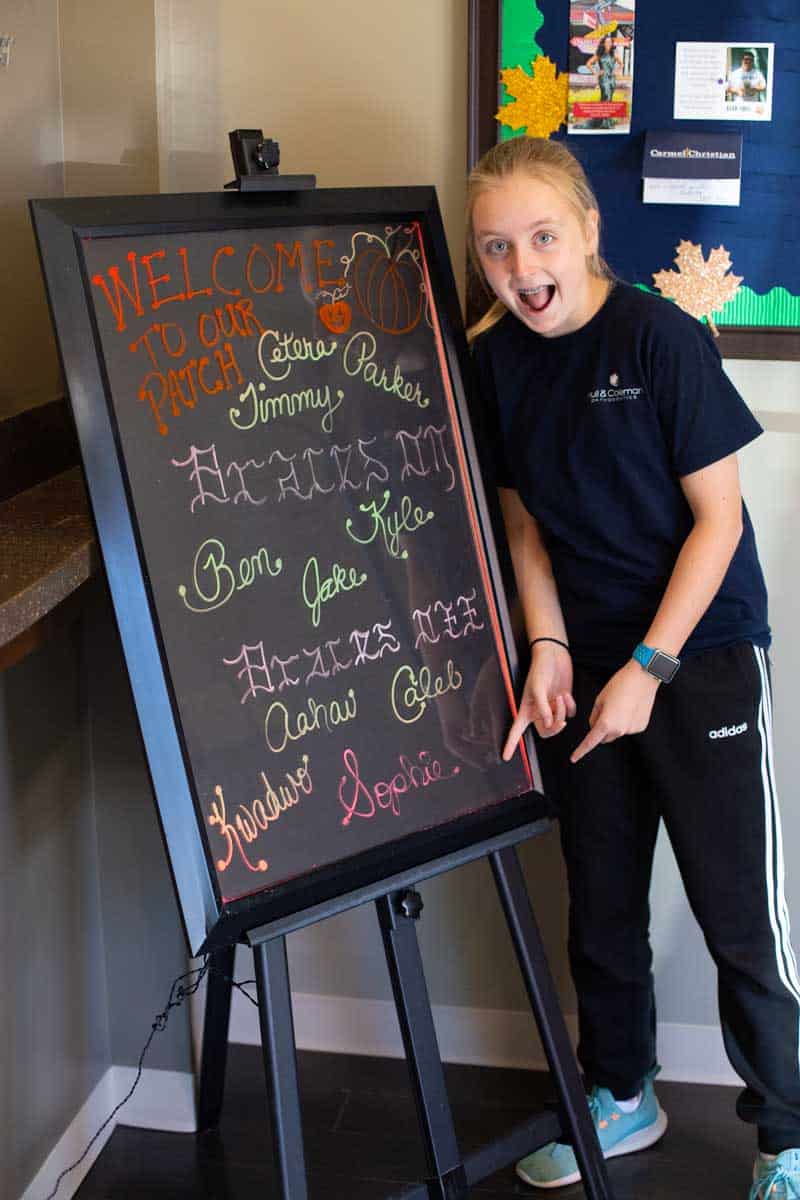 WELCOME
TO OUR
PATCH
Cetera Parker
Timmy
Braces On
Kyle
Ben
Jake
Braces Off
Aahav Caleb
Kwadwo Sophie
Carmel Christian
& Coleman
ORTHODONTICS
adidas